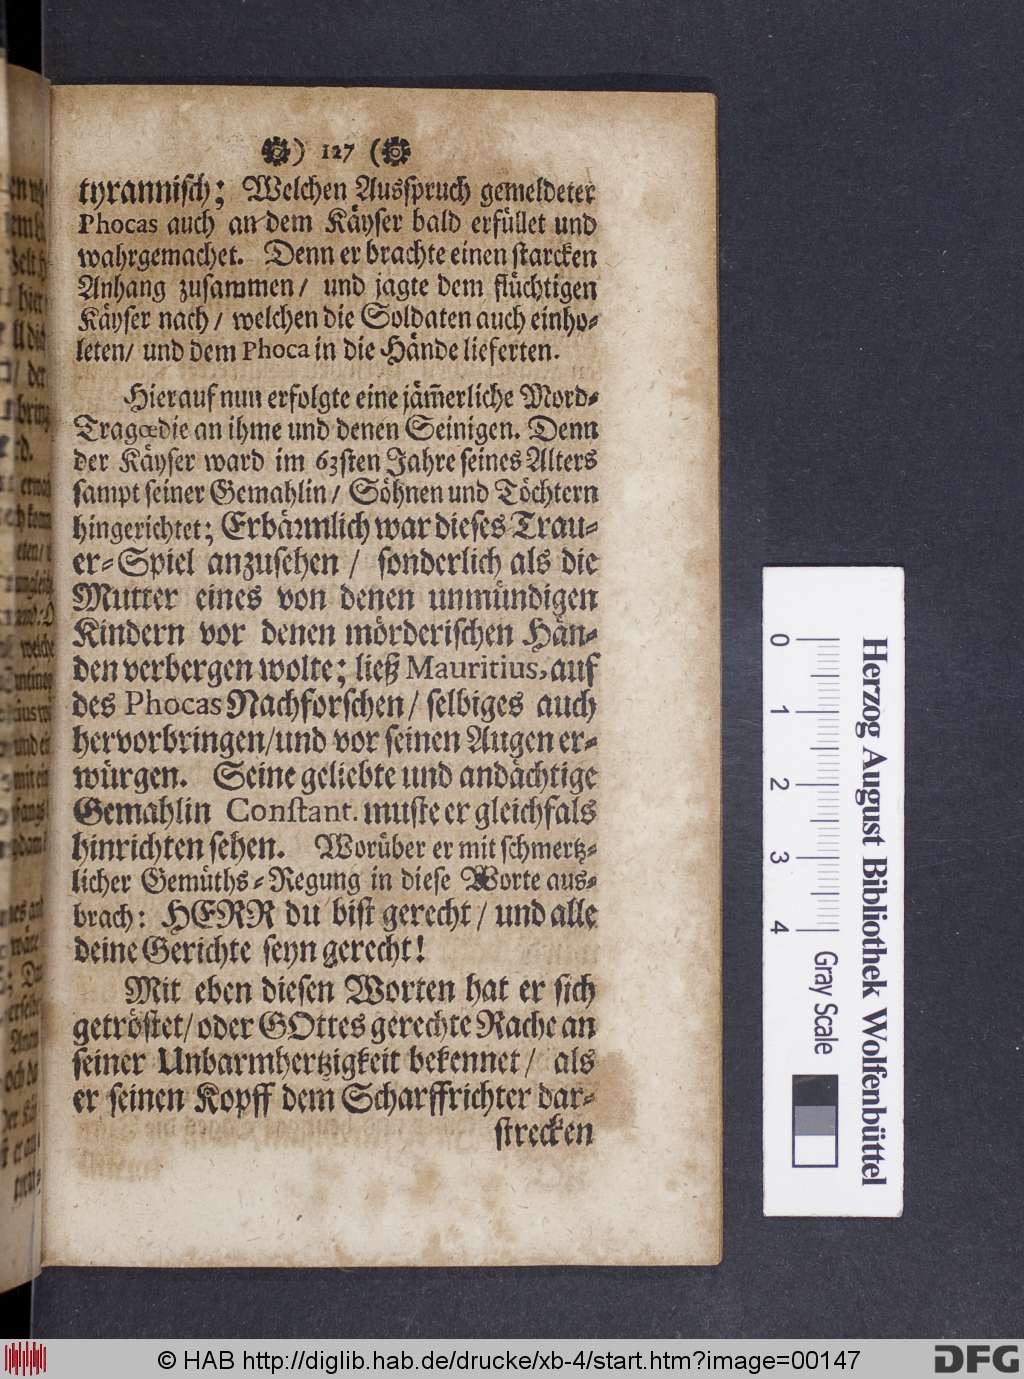 ) 127 (
tyrannisch; Welchen Ausspruch gemeldeter
Phocas auch an dem Käyser bald erfüllet und
wahrgemachet. Denn er brachte einen starcken
Anhang zusammen/ und jagte dem flüchtigen
Käyser nach/ welchen die Soldaten auch einho-
leten/ und dem Phoca in die Hände lieferten.
Hierauf nun erfolgte eine jäm̃erliche Mord-
Tragœdie an ihme und denen Seinigen. Denn
der Käyser ward im 63sten Jahre seines Alters
sampt seiner Gemahlin/ Söhnen und Töchtern
hingerichtet; Erbärmlich war dieses Trau-
er-Spiel anzusehen / sonderlich als die
Mutter eines von denen unmündigen
Kindern vor denen mörderischen Hän-
den verbergen wolte; ließ Mauritius, auf
des Phocas Nachforschen/ selbiges auch
hervorbringen/und vor seinen Augen er-
würgen. Seine geliebte und andächtige
Gemahlin Constant. muste er gleichfals
hinrichten sehen. Worüber er mit schmertz-
licher Gemüths-Regung in diese Worte aus-
brach: HERR du bist gerecht/ und alle
deine Gerichte seyn gerecht!
Mit eben diesen Worten hat er sich
getröstet/ oder GOttes gerechte Rache an
seiner Unbarmhertzigkeit bekennet/ als
er seinen Kopff dem Scharffrichter dar-
strecken
0 1 2 3 4
Gray Scale
Herzog August Bibliothek Wolfenbüttel
© HAB http://diglib.hab.de/drucke/xb-4/start.htm?image=00147
DFG